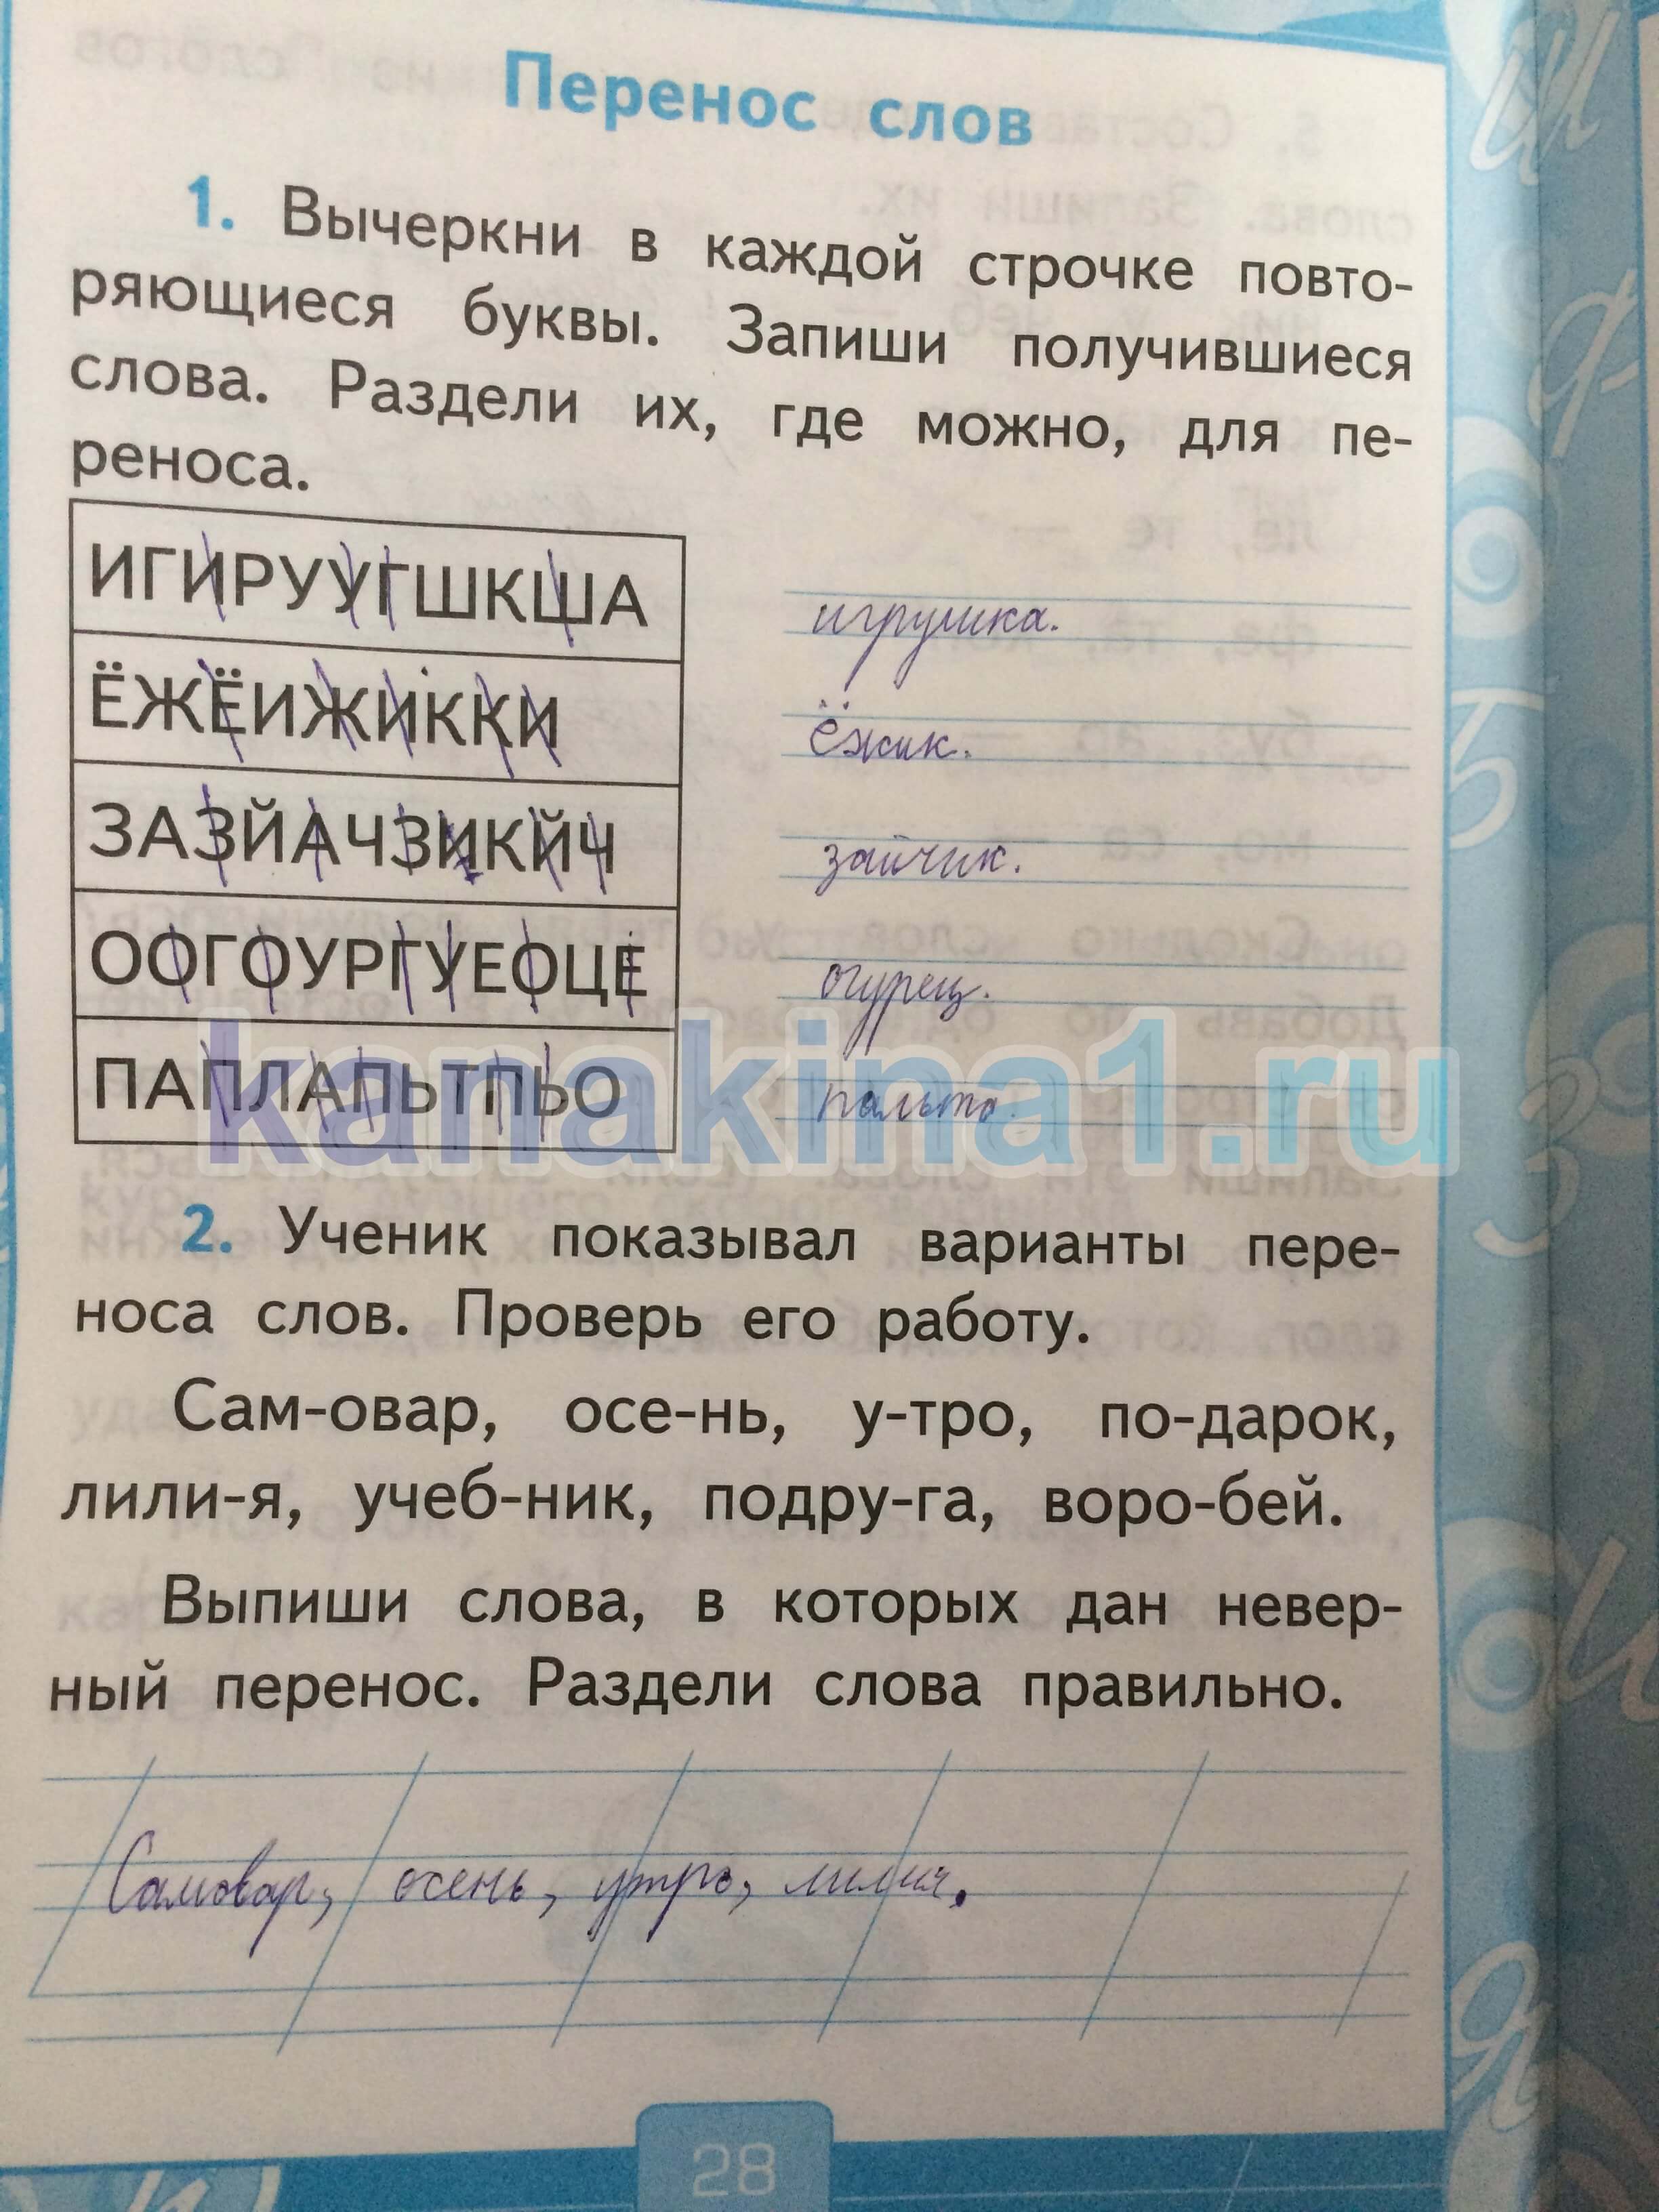 Перенос слов
1. Вычеркни в каждой строчке повто-
ряющиеся буквы. Запиши получившиеся
слова. Раздели их, где можно, для пе-
реноса.
ИГИРУУГШКША игрушка.
ЁЖЁИЖИККИ ёжик.
ЗАЗЙАЧЗИКЙЧ зайчик.
ООГОУРГУЕОЦЕ огурец.
ПАПЛАПЬТПЬО пальто.
kanakina1.ru
2. Ученик показывал варианты пере-
носа слов. Проверь его работу.
Сам-овар, осе-нь, у-тро, по-дарок,
лили-я, учеб-ник, подру-га, воро-бей.
Выпиши слова, в которых дан невер-
ный перенос. Раздели слова правильно.
Самовар, осень, утро, лилия.
28